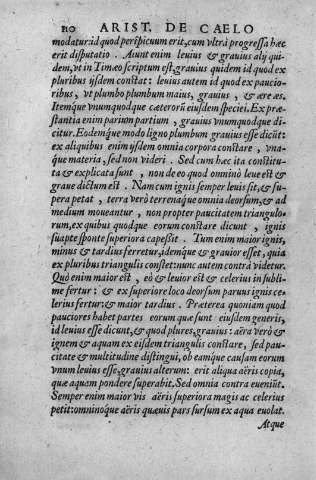 210 ARIST. DE CAELO
modatur: id quod perspicuum erit, cum vltrà progressa hæc
erit disputatio. Aiunt enim leuius & grauius alij qui-
dem, vt in Timæo scriptum est, grauius quidem id quod ex
pluribus ijsdem constat: leuius autem id quod ex paucio-
ribus, vt plumbo plumbum maius, grauius, & ære æs.
Itemque vnumquodque cæterorū eiusdem speciei. Ex præ-
stantia enim parium partium, grauius vnumquodque di-
citur. Eodemque modo ligno plumbum grauius esse dicūt:
ex aliquibus enim ijsdem omnia corpora constare, vna-
que materia, sed non videri. Sed cum hæc ita constitu-
ta & explicata sunt, non de eo quod omnino leue est &
graue dictum est. Nam cum ignis semper leuis sit, & su-
pera petat, terra verò terrenaque omnia deorsum, & ad
medium moueantur, non propter paucitatem triangulo-
rum, ex quibus quodque eorum constare dicunt, ignis
suapte sponte superiora capessit. Tum enim maior ignis,
minus & tardius ferretur, idemque & grauior esset, quia
ex pluribus triangulis constet: nunc autem contrà videtur.
Quò enim maior est, eò & leuior est & celerius in subli-
me fertur: & ex superiore loco deorsum paruus ignis ce-
lerius fertur: & maior tardius. Præterea quoniam quod
pauciores habet partes eorum quæ sunt eiusdem generis,
id leuius esse dicunt, & quod plures, grauius: aëra verò &
ignem & aquam ex eisdem triangulis constare, sed pau-
citate & multitudine distingui, ob eamque causam eorum
vnum leuius esse, grauius alterum: erit aliqua aëris copia,
quæ aquam pondere superabit. Sed omnia contra eueniūt.
Semper enim maior vis aëris superiora magis ac celerius
petit: omninoque aëris quæuis pars sursum ex aqua euolat.
Atque